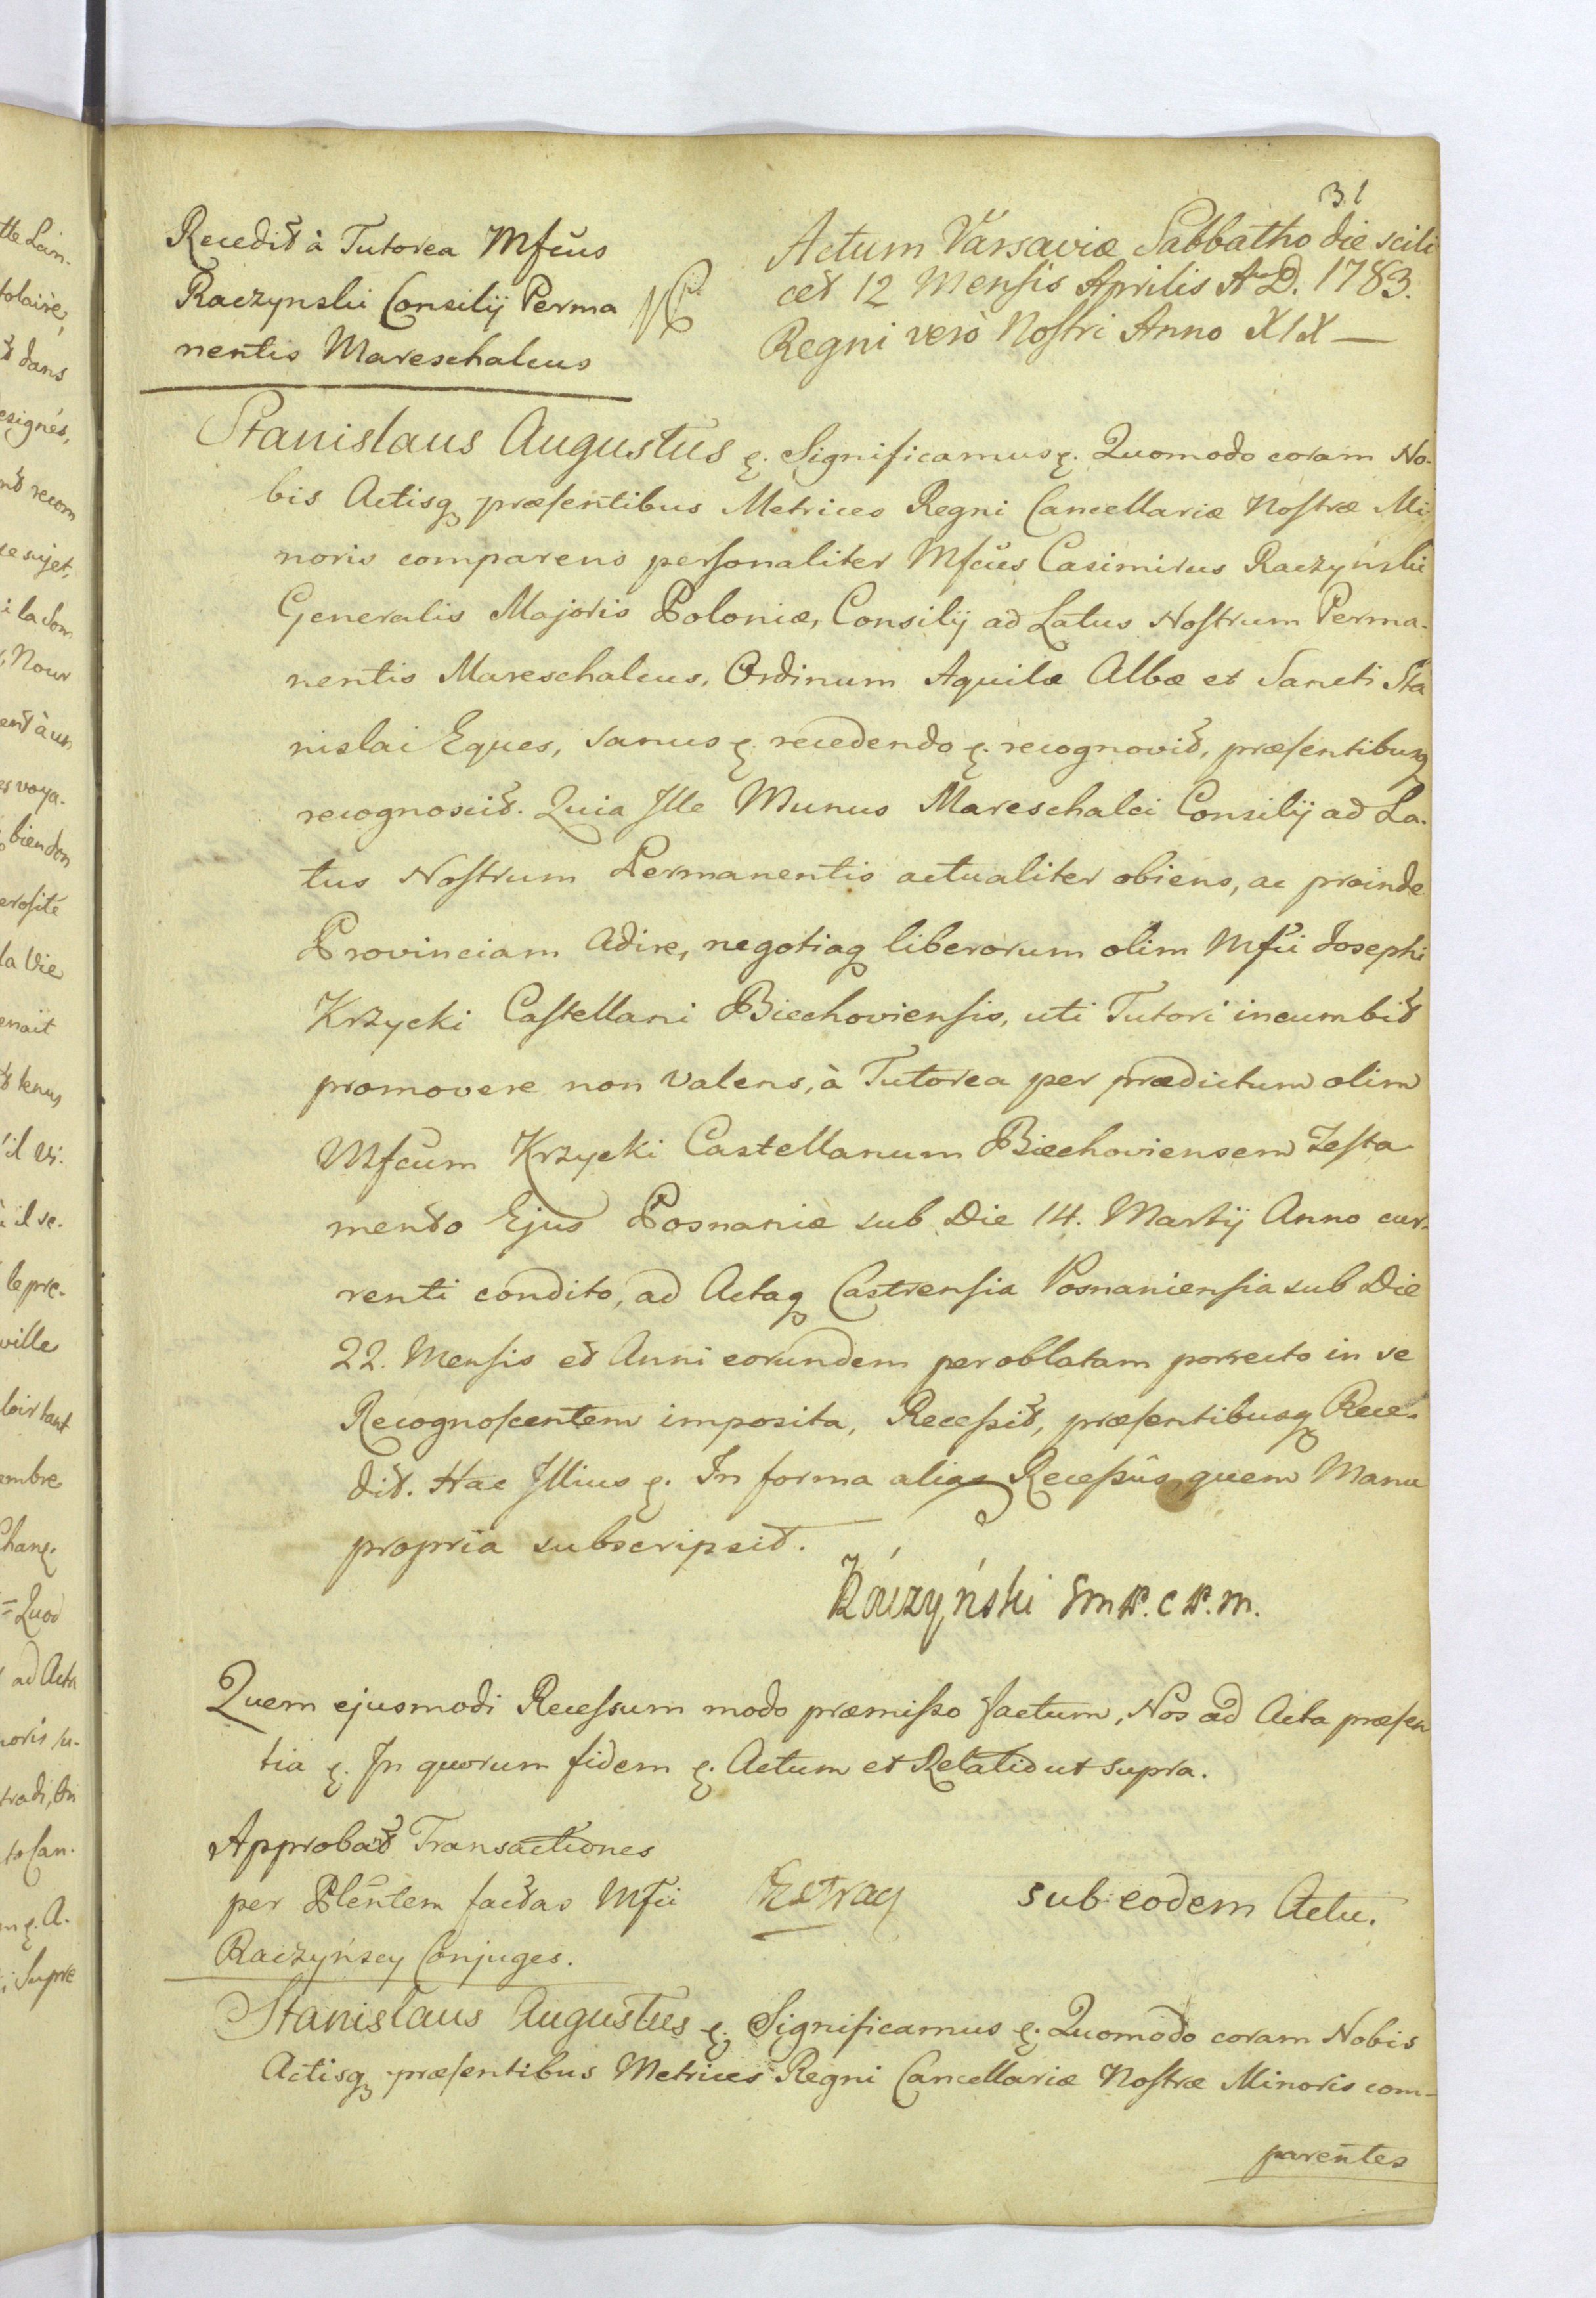 31
Recedit à Tutorea Mfcus
Raczynski Consilij Perma
nentis Mareschalcus
Actum Varsaviæ Sabbatho die scili
cet 12 Mensis Aprilis A. D. 1783.
Regni verò Nostri Anno XIX —
Stanislaus Augustus &. Significamus &. Quomodo coram No-
bis Actisq præsentibus Metrices Regni Cancellariæ Nostræ Mi
noris comparens personaliter Mfcus Casimirus Raczyński
Generalis Majoris Poloniæ, Consilij ad Latus Nostrum Perma-
nentis Mareschalcus, Ordinum Aquilæ Albæ et Sancti Sta
nislai Eques, sanus &. recedendo &. recognovit, præsentibusq
recognoscit. Quia Ille Munus Mareschalci Consilij ad La-
tus Nostrum Permanentis actualiter obiens, ac proinde
Provinciam Adire, negotiaq liberorum olim Mfci Josephi
Krzycki Castellani Biechoviensis, uti Tutori incumbit
promovere non valens, à Tutorea per prædictum olim
Mfcum Krzycki Castellanum Biechoviensem Testa
mento Ejus Posnaniæ sub Die 14. Martij Anno cur-
renti condito, ad Actaq Castrensia Posnaniensia sub Die
22. Mensis et Anni eorundem per oblatam porrecto in se
Recognoscentem imposita, Recessit, præsentibusq Rece-
dit. Hac Illius &. In forma alias Recessûs, quem Manu
propria subscripsit.
Raczyński GmP. C P. m.
Quem ejusmodi Recessum modo præmisso factum, Nos ad Acta præsen
tia &. In quorum fidem &. Actum et Relatio ut supra.
Approbat Transactiones
per Plentem factas Mfci
Raczyńscy Conjuges.
Extrad
sub eodem Actu.
Stanislaus Augustus &. Significamus &. Quomodo coram Nobis
Actisq præsentibus Metrices Regni Cancellariæ Nostræ Minoris com-
parentes